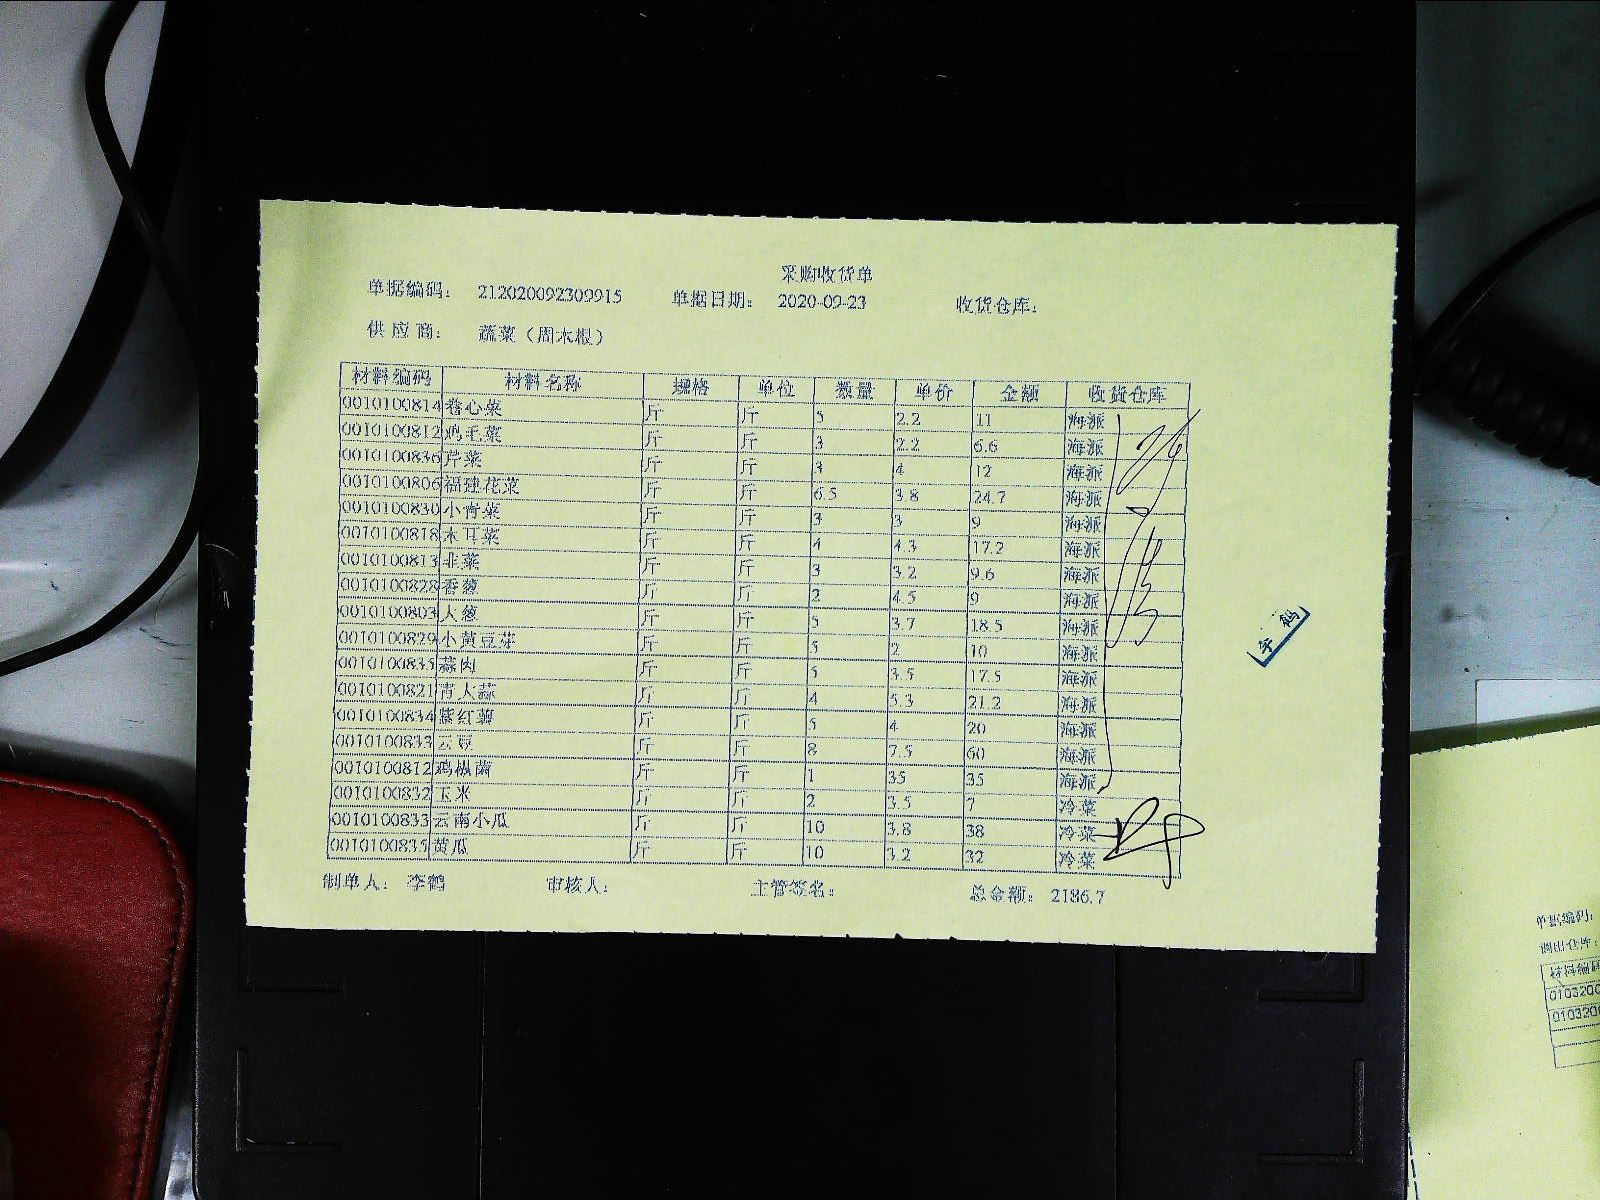 采购收货单
单据编码： 212020092309915 单据日期： 2020-09-23 收货仓库：
供应商： 蔬菜（周木根）
材料编码 材料名称 规格 单位 数量 单价 金额 收货仓库
0010100814 卷心菜 斤 斤 5 2.2 11 海派
0010100812 鸡毛菜 斤 斤 3 2.2 6.6 海派
0010100836 芹菜 斤 斤 3 4 12 海派
0010100806 福建花菜 斤 斤 6.5 3.8 24.7 海派
0010100830 小青菜 斤 斤 3 3 9 海派
0010100818 木耳菜 斤 斤 4 4.3 17.2 海派
0010100813 韭菜 斤 斤 3 3.2 9.6 海派
0010100828 香葱 斤 斤 2 4.5 9 海派
0010100803 大葱 斤 斤 5 3.7 18.5 海派
0010100829 小黄豆芽 斤 斤 5 2 10 海派
0010100835 蒜肉 斤 斤 5 3.5 17.5 海派
0010100821 青大蒜 斤 斤 4 5.3 21.2 海派
0010100834 紫红薯 斤 斤 5 4 20 海派
0010100833 云豆 斤 斤 8 7.5 60 海派
0010100812 鸡枞菌 斤 斤 1 35 35 海派
0010100832 玉米 斤 斤 2 3.5 7 冷菜
0010100833 云南小瓜 斤 斤 10 3.8 38 冷菜
0010100835 黄瓜 斤 斤 10 3.2 32 冷菜
制单人： 李鹤 审核人： 主管签名： 总金额： 2186.7
字码
调出仓库：
材料编码
010320
010320